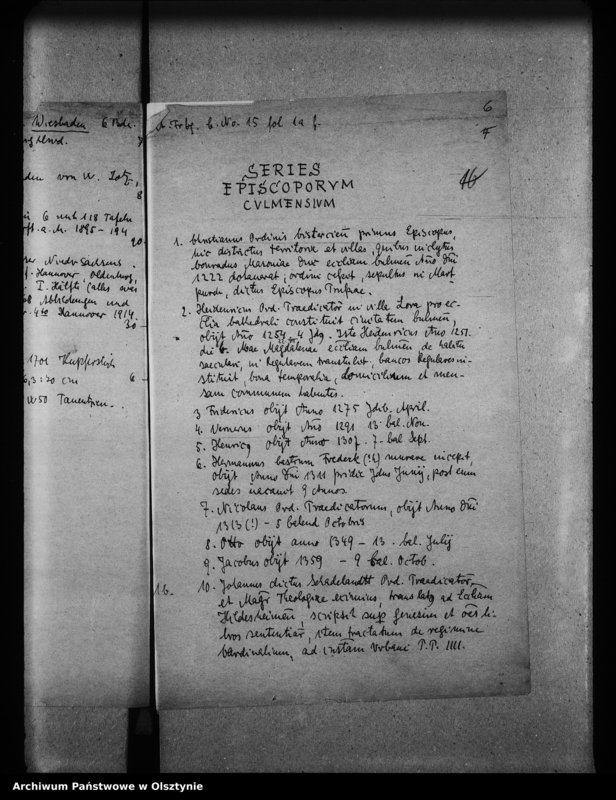 Wiesbaden 6 Bde.
den von W. Lotz,
8
6 mit 118 Tafeln
1895-194
20
Niedersachsens
Hannover Oldenburg,
I. Hälfte (alles
Abbildungen und
Hannover 1914.
30
1701 Kupferstich
6,3:20 cm 6
W50 Tauentzien.
A. Frbg. C. No. 15 fol 1a f.
6
7
16
SERIES
EPISCOPORVM
CVLMENSIVM
1. Christianus Ordinis Cistercien primus Episcopus,
hic districtus territoria et villas, quibus inclytus
Conradus Masoviae Dux eccliam Culmen Ano Dni
1222 dotaverat, ordini cessit, sepultus in Mart
purch, dictus Episcopus Prussiae.
2. Heidenricus Ord. Praedicator in villa Loza pro ec-
clia Cathedrali constituit civitatem Culmen,
obijt Ano 1254 4 Jdg. Iste Heidenricus Ano 1251.
die B. Mae Magdalenae eccliam Culmen de habitu
saeculari, in Regularem transtulit, Canicos Regulares in-
stituit, bona temporalia, domicilium et men-
sam communem habentes.
3 Fridericus obijt Anno 1275 Jdib. April.
4. Vernerus obijt Ano 1291 13 cal. Nou.
5. Henricg obijt Anno 1307. 7. cal Sept.
6. Hermannus castrum Frederk (!k) murare incepit,
obijt Anno Dni 1311 pridie Jdus Junij, post eum
sedes vacauit 9 Annos
7. Nicolaus Ord. Praedicatorum, obijt Anno Dni
1313 (!) - 5 Calend Octobris
8. Otto obijt anno 1349 - 13. cal. Julij
9. Jacobus obijt 1359 - 9 Cal. Octob.
1b.
10. Johannes dictus Schadelandtt Ord. Praedicator,
et Magr Theologiae eximius, translatg ad Eccliam
Hildesheimen, scripsit sup genesim et oes li-
bros sententiar, item tractatum de regimine
Cardinalium, ad instam Vrbani P.P. IIII.
Archiwum Państwowe w Olsztynie